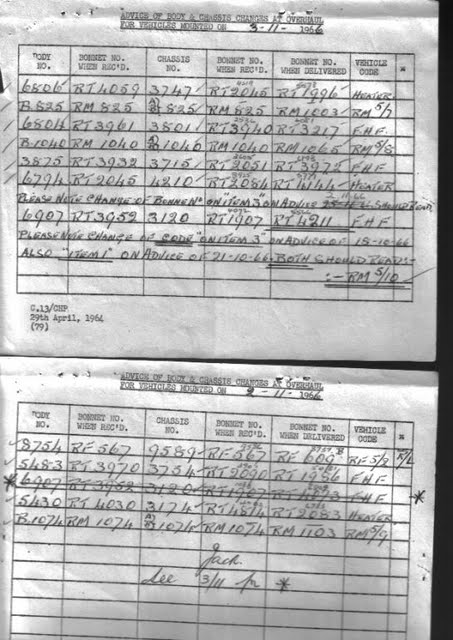 ADVICE OF BODY & CHASSIS CHANGES AT OVERHAUL
FOR VEHICLES MOUNTED ON 3-11-1966
BODY NO. BONNET NO. WHEN REC'D. CHASSIS NO. BONNET NO. WHEN REC'D. BONNET NO. WHEN DELIVERED VEHICLE CODE *
6806 RT4059 3747 RT2045 RT1996 HEATER
B.825 RM 825 825 RM 825 RM1003 RM 5/7
6804 RT3961 3801 RT3940 RT3217 F.H.F
B.1040 RM 1040 1040 RM1040 RM1065 RM 5/8
3875 RT3932 3715 RT2051 RT3972 F.H.F
6794 RT2045 4210 RT2084 RT4144 HEATER
PLEASE NOTE CHANGE OF BONNET Nº ON "ITEM 3" ON ADVICE 25-10-66 SHOULD READ
6907 RT3952 3120 RT1907 RT4211 F.H.F
PLEASE NOTE CHANGE OF CODE "ON ITEM 3" ON ADVICE OF 15-10-66
ALSO "ITEM 1" ON ADVICE OF 21-10-66 BOTH SHOULD READ:-
:- RM 5/10
C.13/CHP
29th April, 1964
(79)
ADVICE OF BODY & CHASSIS CHANGES AT OVERHAUL
FOR VEHICLES MOUNTED ON 3-11-1966
BODY NO. BONNET NO. WHEN REC'D. CHASSIS NO. BONNET NO. WHEN REC'D. BONNET NO. WHEN DELIVERED VEHICLE CODE *
8754 RF 567 9589 RF 567 RF 689 RF 5/2 R/L
5483 RT3970 3754 RT2090 RT1956 F.H.F
* 6907 RT3952 3120 RT1907 F.H.F *
5430 RT 4030 3174 RT4814 RT2083 HEATER
B.1074 RM 1074 1074 RM1074 RM 1103 RM 5/9
Jack.
See 3/11 *